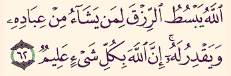 ٱللَّهُ يَبْسُطُ ٱلرِّزْقَ لِمَن يَشَآءُ مِنْ عِبَادِهِۦ
وَيَقْدِرُ لَهُۥٓ ۚ إِنَّ ٱللَّهَ بِكُلِّ شَىْءٍ عَلِيمٌ ٦٢